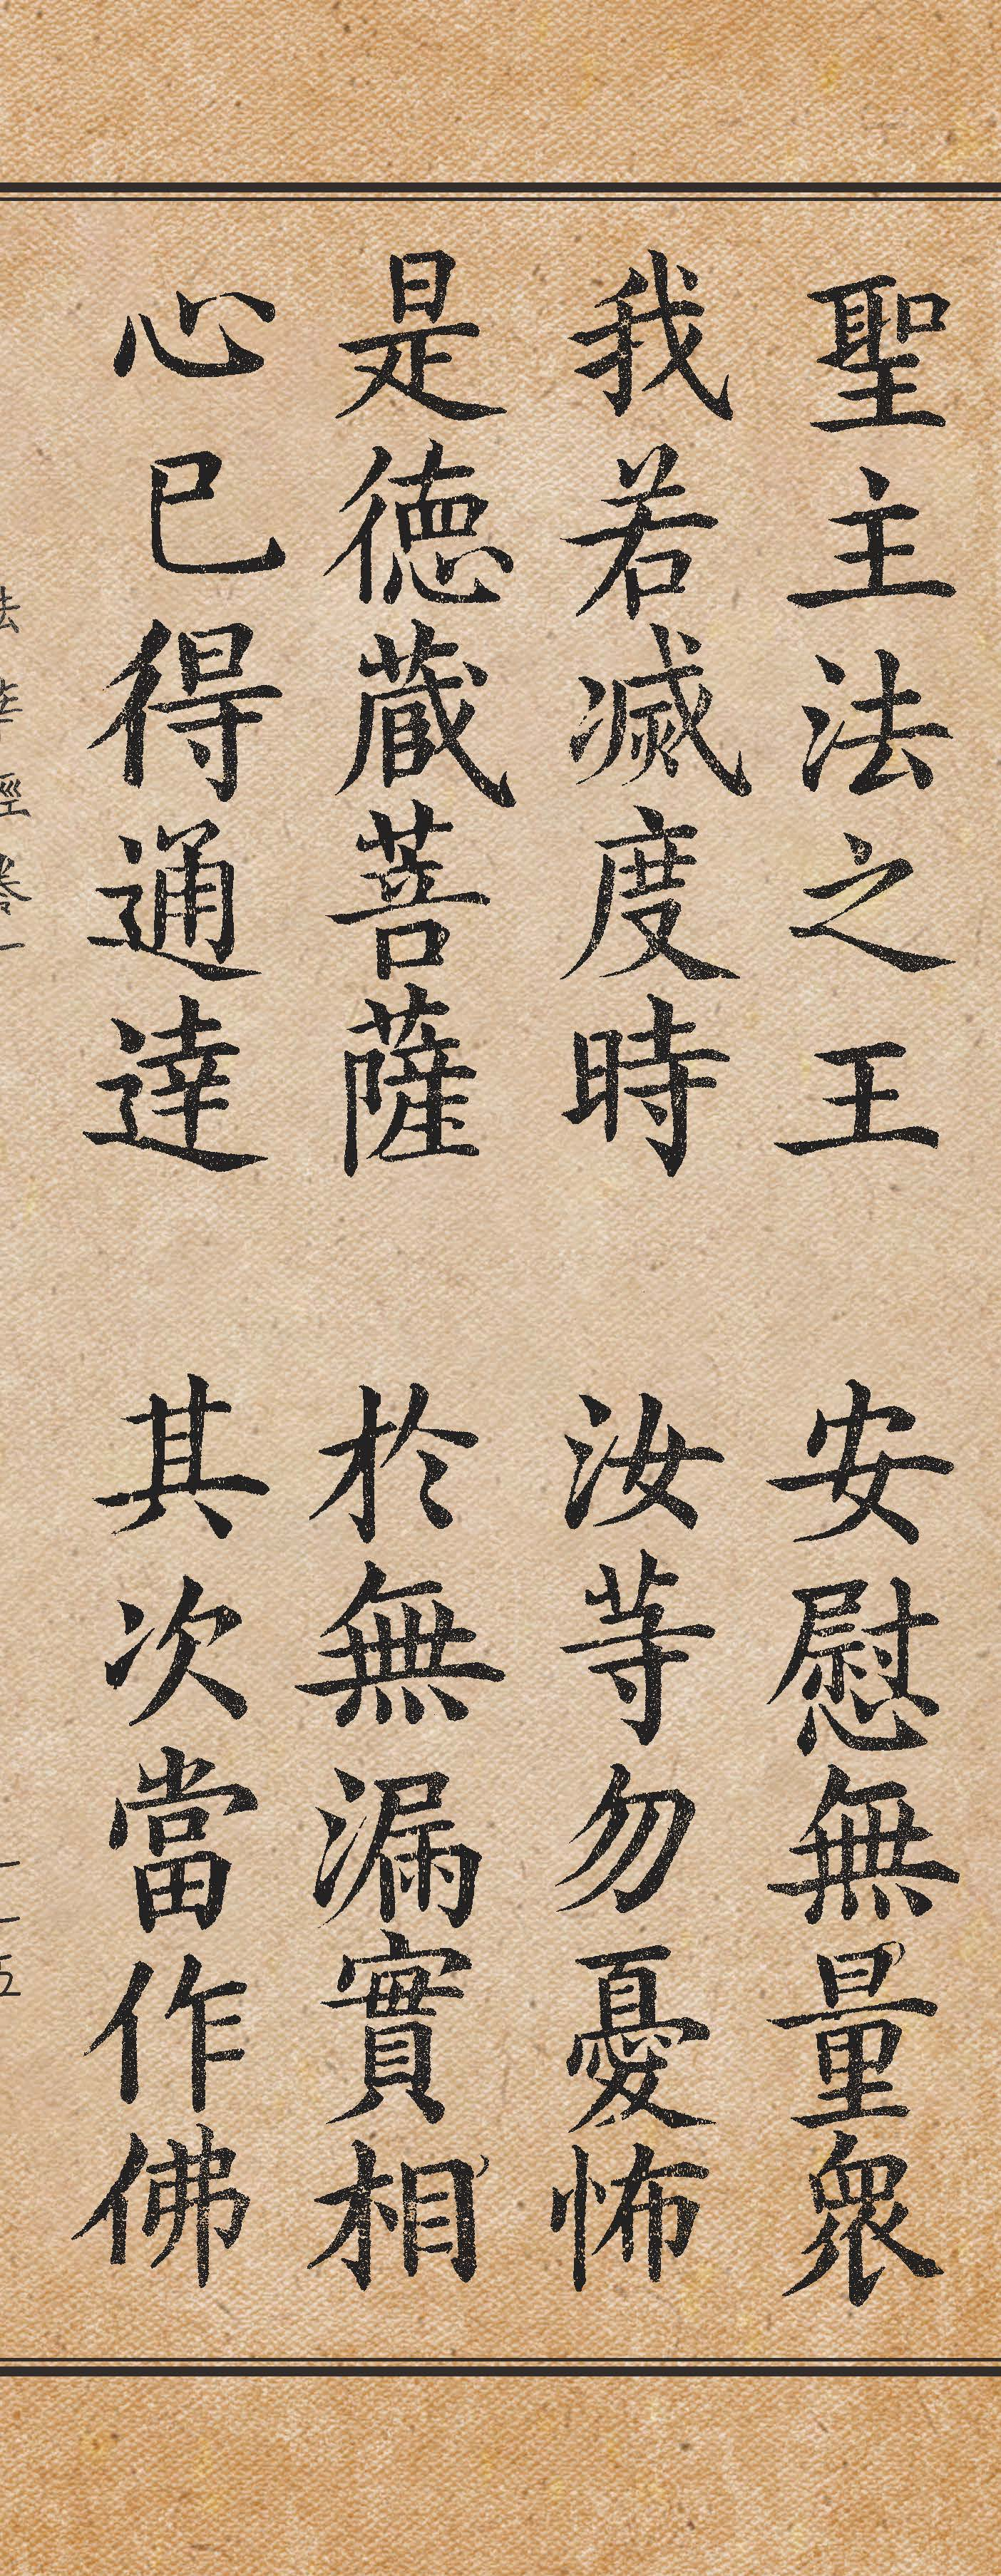 聖主法之王　安慰無量衆
我若滅度時　汝等勿憂怖
是德蔵菩薩　於無漏實相
心已得通達　其次當作佛
法華經卷一　一一五